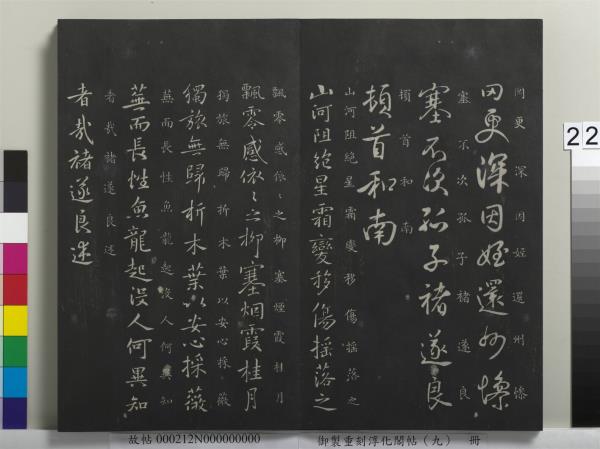 罔更深因姪還州慘
罔更深因姪還州慘
塞不次孤子褚遂良
塞不次孤子褚遂良
頓首和南
頓首和南
山河阻絶星霜變移傷搖落之
山河阻絶星霜變移傷搖落之
飄零感依〻之柳塞煙霞桂月
飄零感依〻之柳塞烟霞桂月
獨旅無歸折木葉以安心採薇
獨旅無歸折木葉以安心採薇
蕪而長性魚龍起沒人何異知
蕪而長性魚龍起沒人何異知
者哉諸遂良述
者哉褚遂良述
22
故帖 000212N000000000
御製重刻淳化閣帖（九） 冊